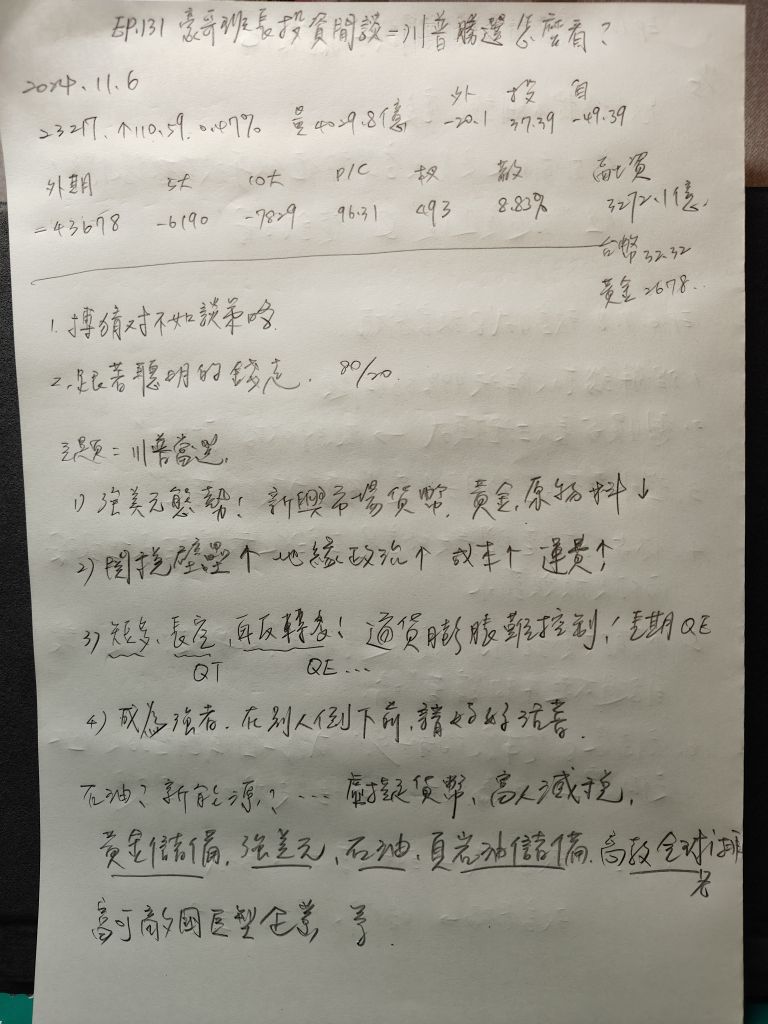 EP.131 豪哥班長投資閒談=川普勝選怎麼看?
2024.11.6
外 投 自
23217. ↑110.59. 0.47% 量4029.8億 -20.1 37.39 -49.39
外期 5大 10大 P/C 权 散 融資
=43678 -6190 -7829 96.31 493 8.83% 3272.1億.
台幣 32.32
黃金 2678..
1. 搏猜对不如談策略.
2. 跟著聰明的錢走. 80/20.
主題=川普當選.
1) 強美元態勢! 新興市場貨幣. 黃金. 原物料↓
2) 関稅壁壘↑ 地緣政治↑ 成本↑ 運費↑
3) 短多、長空, 再反轉多! 通貨膨脹難控制! 長期QE
QT QE...
4) 成為強者. 在別人倒下前, 請好好活著.
石油? 新能源? ... 虛擬貨幣、富人減稅.
黃金儲備. 強美元、石油、頁岩油儲備. 高
富可敵國巨型企業 等.